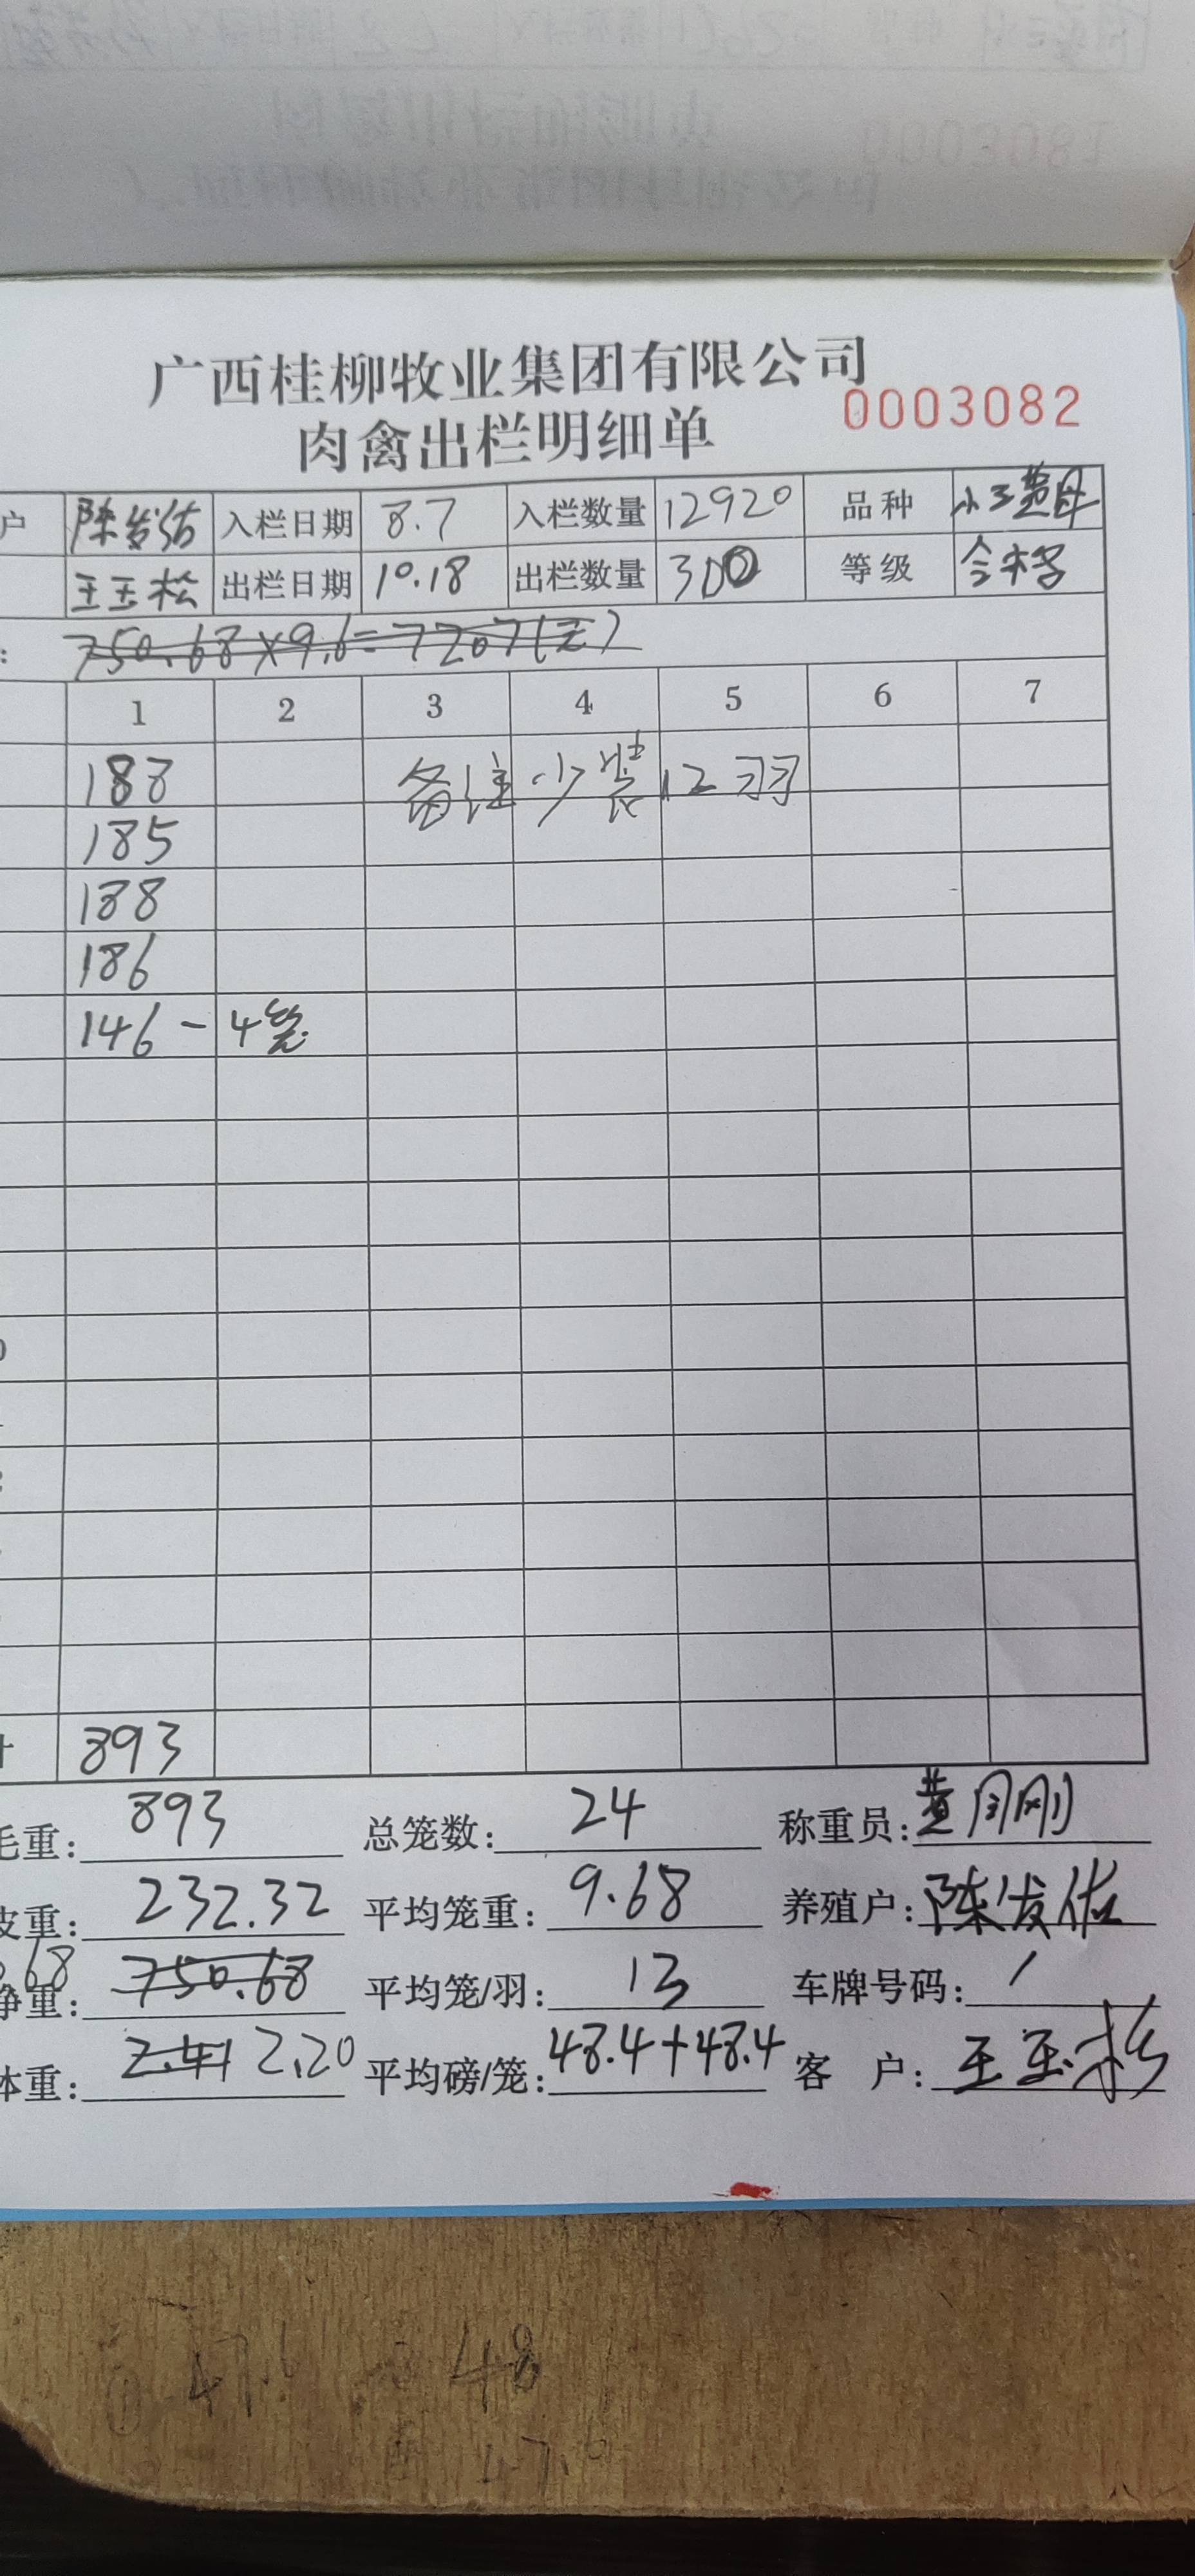 广西桂柳牧业集团有限公司
肉禽出栏明细单 0003082
户 陈发佑 入栏日期 8.7 入栏数量 12920 品种
王玉松 出栏日期 10.18 出栏数量 300 等级 合格
: 750.68×9.6=7207(元)
1 2 3 4 5 6 7
188 备注少装12羽
185
188
186
146-4笼
893
毛重: 893 总笼数: 24 称重员: 黄月刚
皮重: 232.32 平均笼重: 9.68 养殖户: 陈发佑
净重: 68 750.68 平均笼/羽: 13 车牌号码: /
体重: 2.41 2.20 平均磅/笼: 48.4+48.4 客户: 王玉松
47.6 48
47.